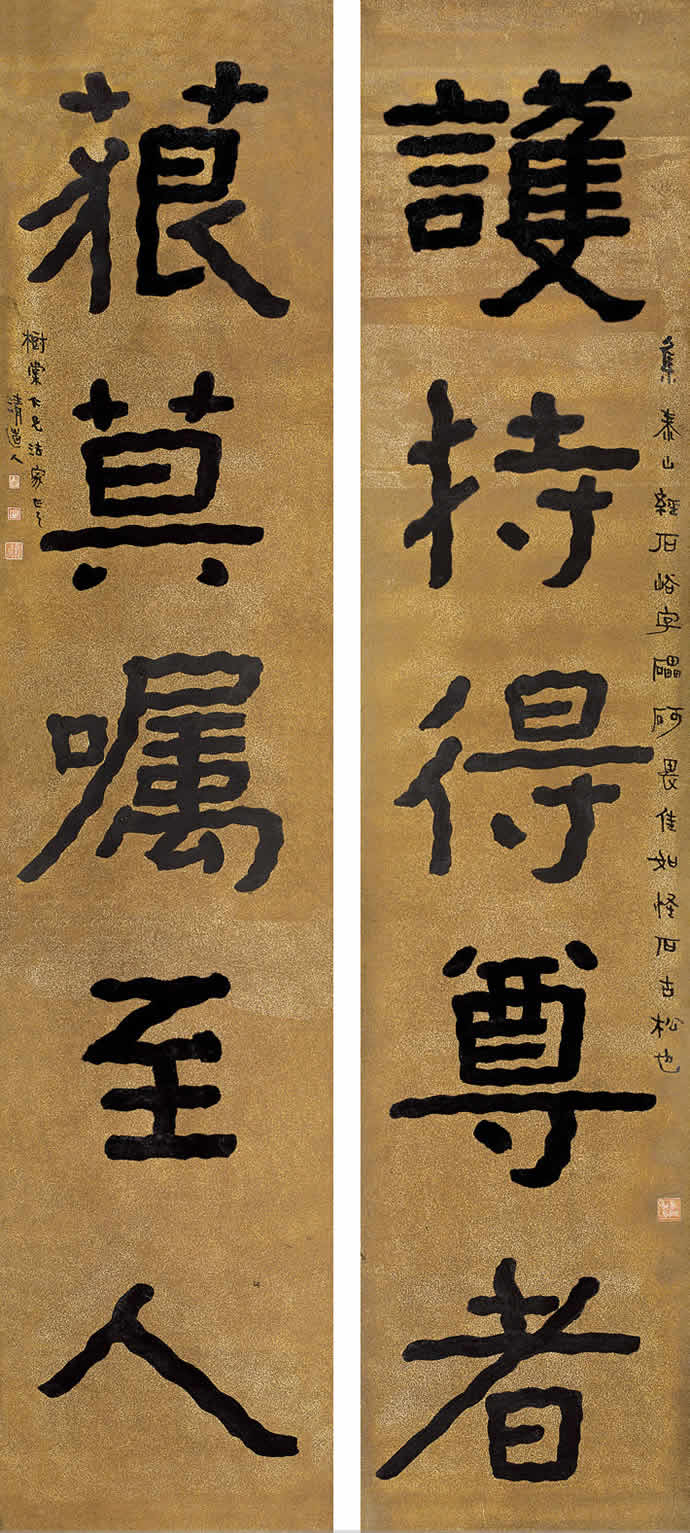 護持得尊者
集泰山經石峪字礧砢畏佳如怪石古松也
莫嘱至人
樹棠仁兄法家正之
清道人